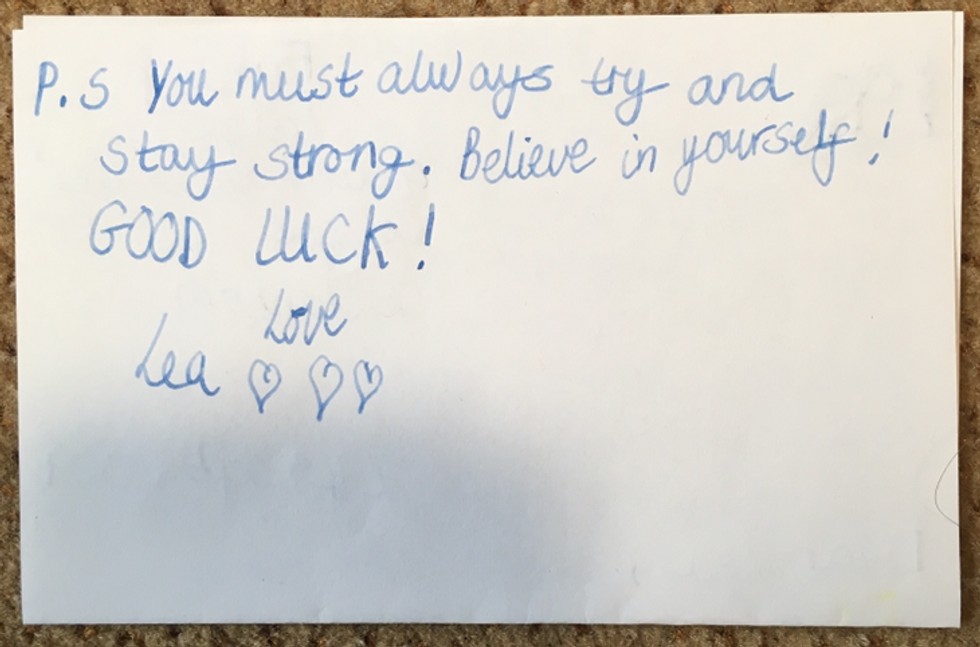 P.S You must always try and
stay strong. Believe in yourself!
GOOD LUCK!
Love
Lea ♡ ♡ ♡